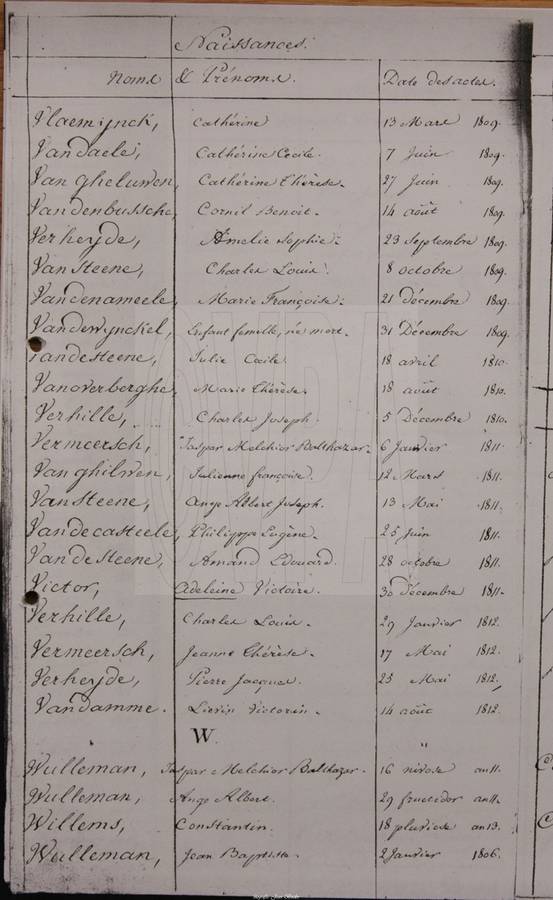 Naissances.
Noms & Prénoms. Date des actes.
Vlaemijnck, Cathérine 13 Mars 1809.
Vandaele, Cathérine Cécile. 7 Juin 1809.
Van gheluwen, Cathérine Thérèse. 27 Juin 1809.
Vandenbussche, Cornil Benoit. 14 août 1809.
Verheyde, Amelie Sophie. 23 Septembre 1809.
Van Steene, Charles Louis. 8 octobre 1809.
Vandenameele, Marie Françoise. 21 décembre 1809.
Vandewynckel, Enfant femelle, né mort. 31 Décembre 1809.
Vandesteene, Julie Cécile. 18 avril 1810.
Vanoverberghe, Marie Thérèse. 18 août 1810.
Verhille, Charles Joseph. 5 Décembre 1810.
Vermeersch, Gaspar Melchior Balthazar. 6 Janvier 1811.
Van ghilwen, Julienne françoise. 12 Mars 1811.
Van Steene, Ange Albert Joseph. 13 Mai 1811.
Vandecasteele, Philippe Eugène. 25 Juin 1811.
Van de Steene, Amand Edouard. 28 octobre 1811.
Victor, Adeleine Victoire. 30 décembre 1811.
Verhille, Charles Louis. 29 Janvier 1812.
Vermeersch, Jeanne Thérèse. 17 Mai 1812.
Verheyde, Pierre Jacques. 25 Mai 1812.
Vandamme. Livin Victorin. 14 août 1812.
W. "
Wulleman, Gaspar Melchior Balthazar. 16 nivose an 11.
Wulleman, Ange Albert. 29 fructidor an 11.
Willems, Constantin. 18 pluviose an 13.
Wulleman, Jean Baptiste. 2 Janvier 1806.